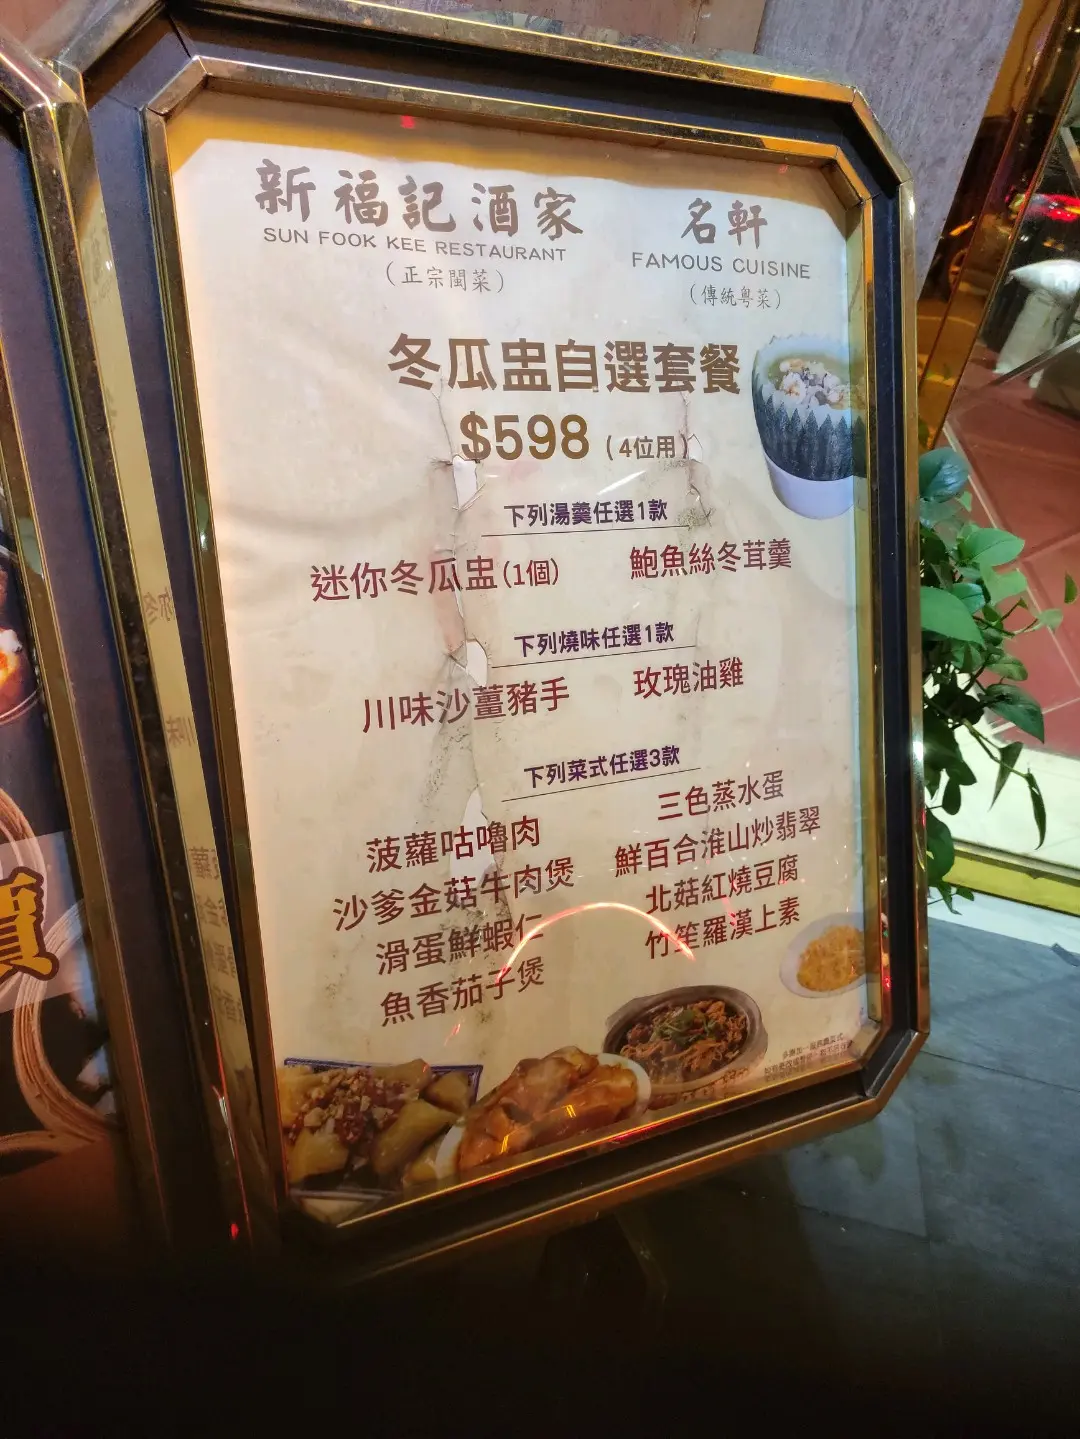 新福記酒家
SUN FOOK KEE RESTAURANT
(正宗閩菜)
名軒
FAMOUS CUISINE
(傳統粵菜)
冬瓜盅自選套餐
$598 (4位用)
下列湯羹任選1款
迷你冬瓜盅(1個)
鮑魚絲冬茸羹
下列燒味任選1款
川味沙薑豬手
玫瑰油雞
下列菜式任選3款
菠蘿咕嚕肉
沙爹金菇牛肉煲
滑蛋鮮蝦仁
魚香茄子煲
三色蒸水蛋
鮮百合淮山炒翡翠
北菇紅燒豆腐
竹笙羅漢上素